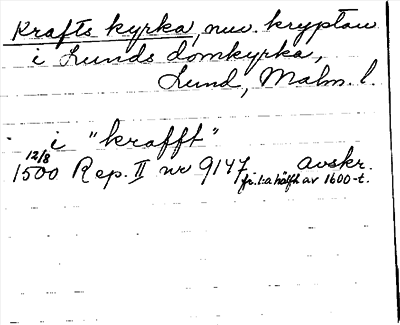 Krafts kyrka, nuv. kryptan
i Lunds domkyrka,
Lund, Malm. l.
i "krafft"
12/8
1500 Rep. II nr 9147 avskr.
fr. 1:a hälft av 1600-t.